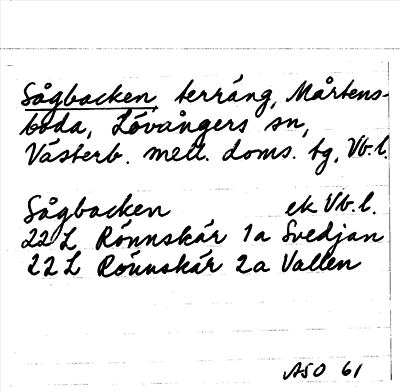 Sågbacken, terräng, Mårtens-
boda, Lövångers sn,
Västerb. mell. doms. tg, Vb.l.
Sågbacken ek Vb.l.
22 L Rönnskär 1a Svedjan
22 L Rönnskär 2a Vallen
ASO 61